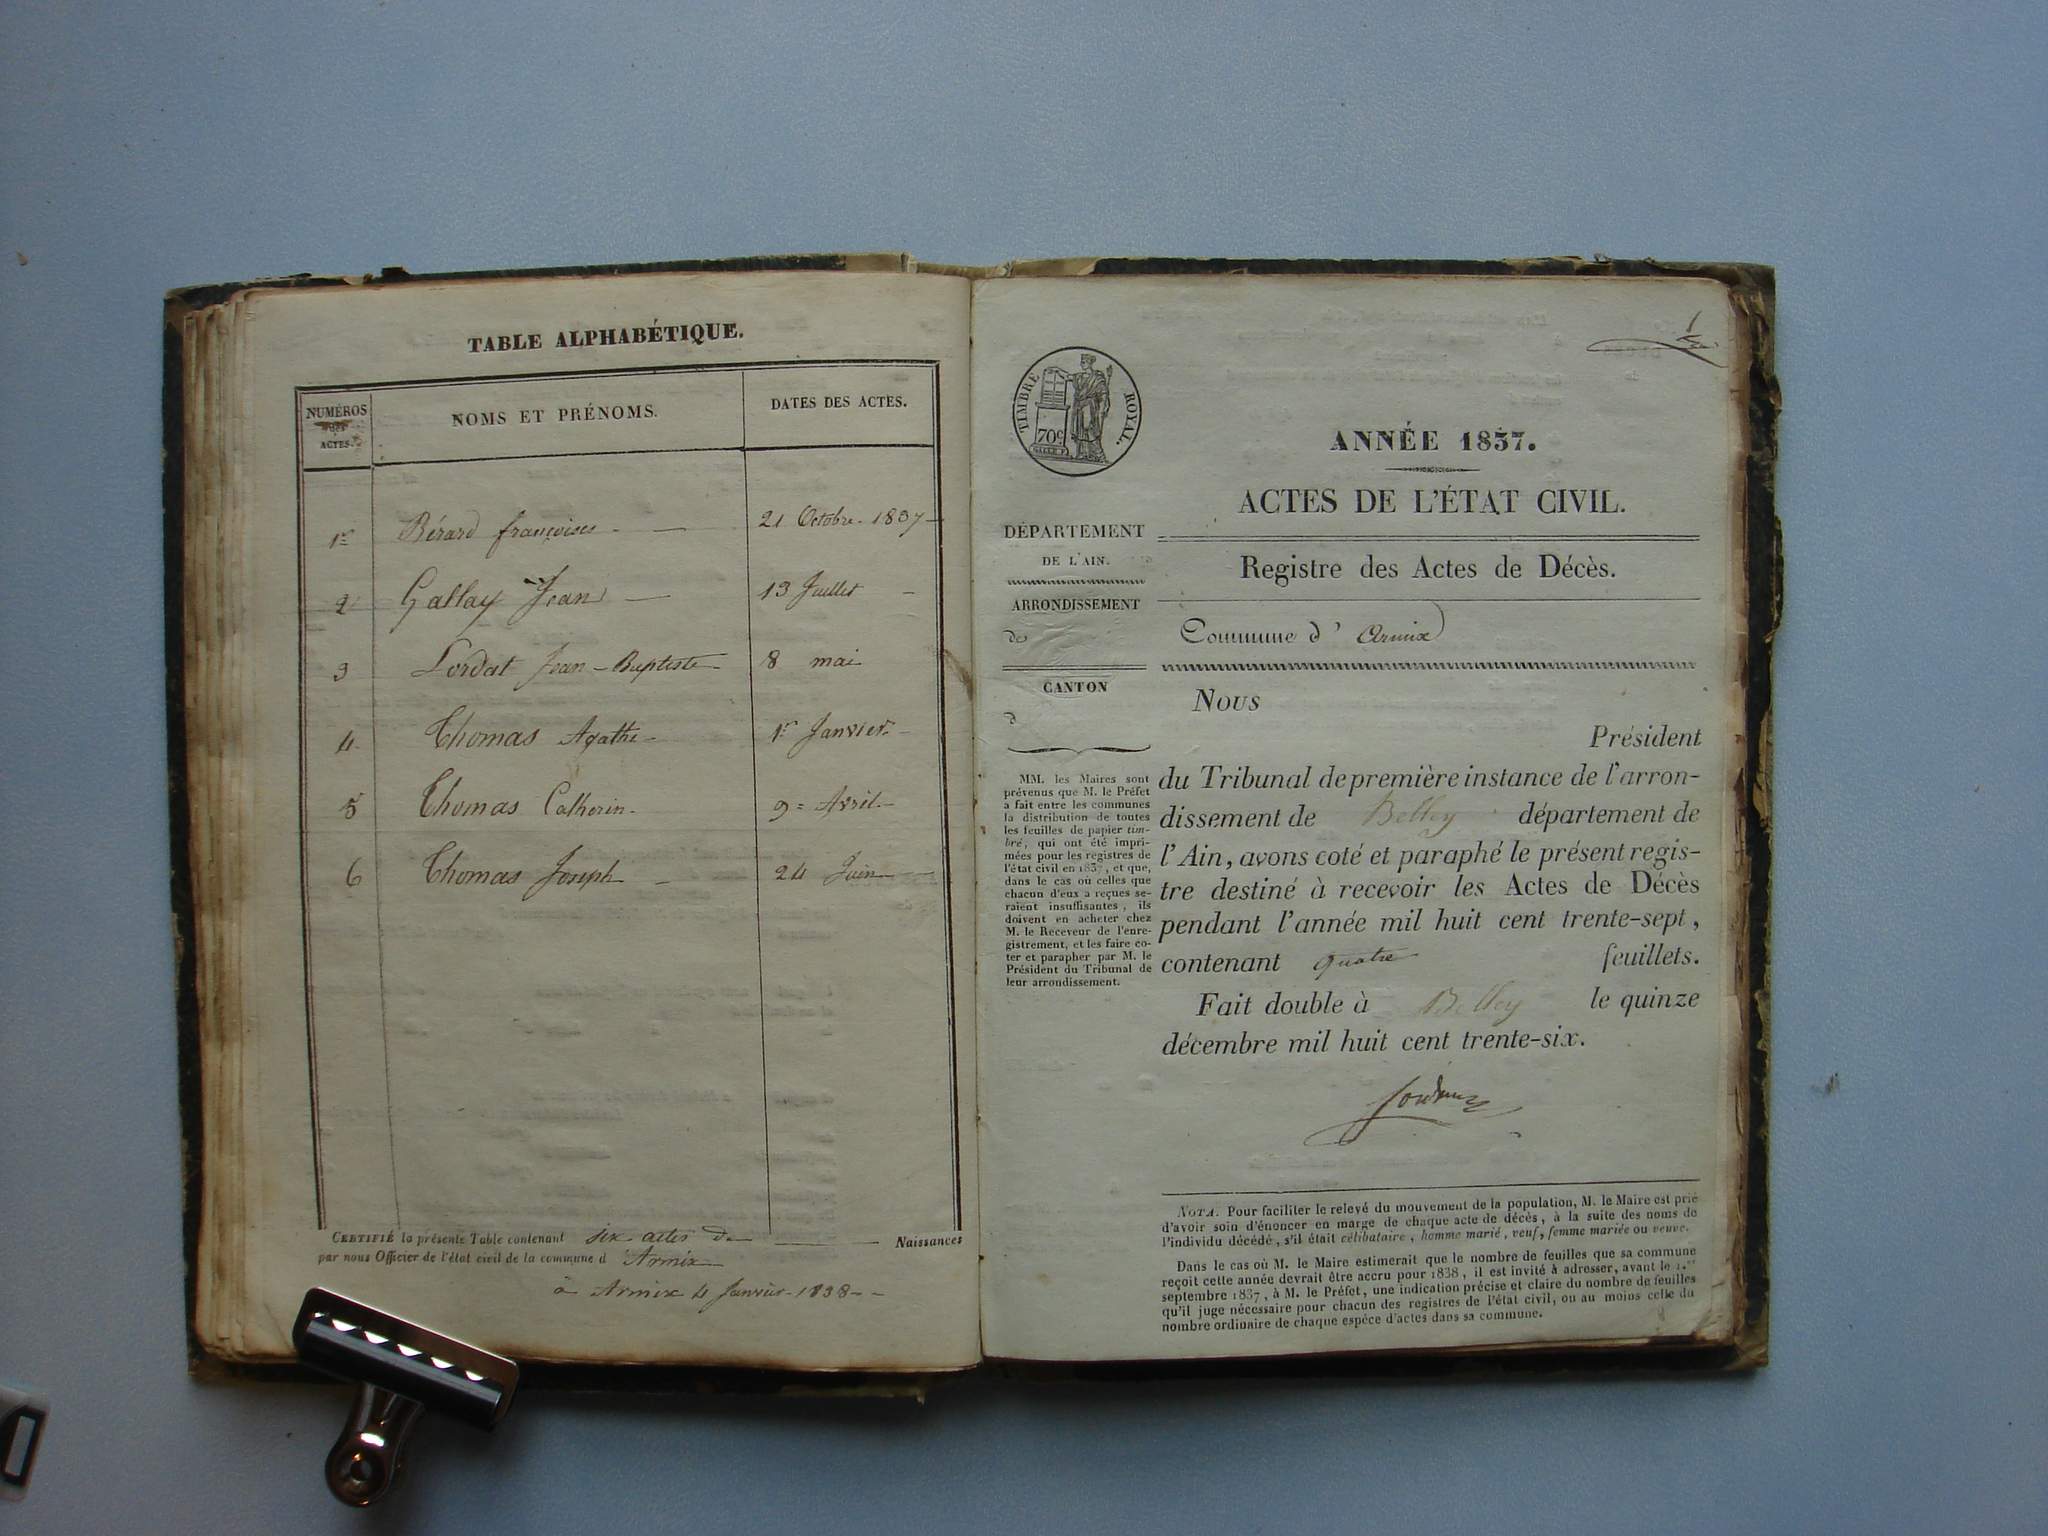 TABLE ALPHABÉTIQUE.
NUMÉROS
des
ACTES.
NOMS ET PRÉNOMS.
DATES DES ACTES.
1er Bérard françoises - — 21 Octobre. 1837 —
2 Gallay Jean — 13 Juillet —
3 Lordat Jean-Baptiste 8 mai
4 Thomas Agathe - 1er Janvier. -
5 Thomas Catherin. 9 = Avril. -
6 Thomas Joseph - 24 Juin —
CERTIFIÉ la présente Table contenant six actes de — Naissances
par nous Officier de l'état civil de la commune d'Armix
à Armix 4 Janvier - 1838 - -
TIMBRE ROYAL.
70c
ANNÉE 1837.
ACTES DE L'ÉTAT CIVIL.
Registre des Actes de Décès.
Commune d' Armix
DÉPARTEMENT
DE L'AIN.
ARRONDISSEMENT
de
CANTON
d
MM. les Maires sont
prévenus que M. le Préfet
a fait entre les communes
la distribution de toutes
les feuilles de papier tim-
bré, qui ont été impri-
mées pour les registres de
l'état civil en 1837, et que,
dans le cas où celles que
chacun d'eux a reçues se-
raient insuffisantes, ils
doivent en acheter chez
M. le Receveur de l'enre-
gistrement, et les faire co-
ter et parapher par M. le
Président du Tribunal de
leur arrondissement.
Nous
Président
du Tribunal de première instance de l'arron-
dissement de Belley département de
l'Ain, avons coté et paraphé le présent regis-
tre destiné à recevoir les Actes de Décès
pendant l'année mil huit cent trente-sept,
contenant quatre feuillets.
Fait double à Belley le quinze
décembre mil huit cent trente-six.
NOTA. Pour faciliter le relevé du mouvement de la population, M. le Maire est prié
d'avoir soin d'énoncer en marge de chaque acte de décès, à la suite des noms de
l'individu décédé, s'il était célibataire, homme marié, veuf, femme mariée ou veuve.
Dans le cas où M. le Maire estimerait que le nombre de feuilles que sa commune
reçoit cette année devrait être accru pour 1838, il est invité à adresser, avant le 1.er
septembre 1837, à M. le Préfet, une indication précise et claire du nombre de feuilles
qu'il juge nécessaire pour chacun des registres de l'état civil, ou au moins celle du
nombre ordinaire de chaque espèce d'actes dans sa commune.